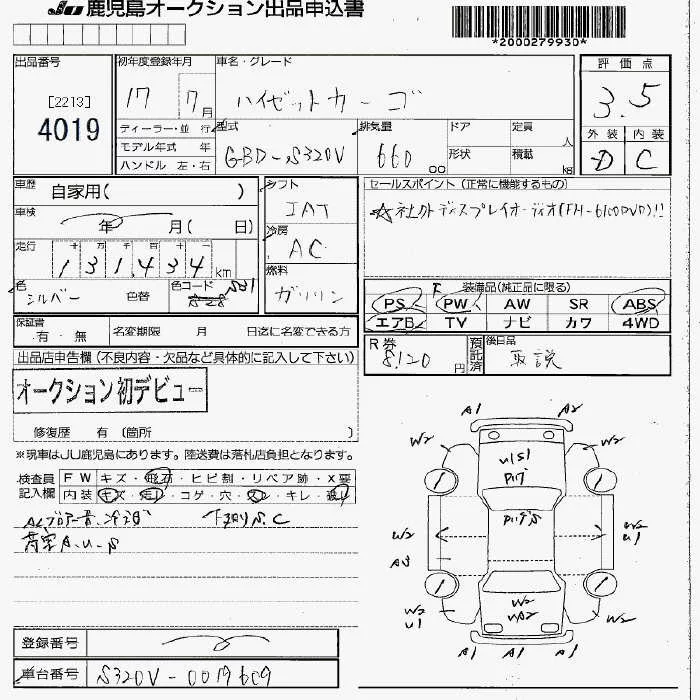 JU 鹿児島オークション出品申込書
*2000279930*
出品番号
[2213]
4019
初年度登録年月
17 7月
車名・グレード
ハイゼットカーゴ
評価点
3.5
外装 内装
D C
ディーラー・並行
モデル年式 年
ハンドル 左・右
型式
GBD-S320V
排気量
660 cc
ドア
形状
定員 人
積載 kg
車歴 自家用( )
車検 年 月( 日)
走行 十 万 千 百 十 一
131,434 km
色 シルバー 色替
色コード
S28 S21
シフト
IAT
冷房
AC
燃料
ガソリン
セールスポイント (正常に機能するもの)
☆社外ディスプレイオーディオ(FH-6100DVD)!!
装備品(純正品に限る)
PS F PW AW SR ABS
エアB TV ナビ カワ 4WD
R券
8,120円
預託済
後日品
取説
保証書
有・無
名変期限 月 日迄に名変できる方
出品店申告欄 (不良内容・欠品など具体的に記入して下さい)
オークション初デビュー
修復歴 有 (箇所 )
※現車はJU鹿児島にあります。陸送費は落札店負担となります。
検査員記入欄
FW キズ・飛石・ヒビ割・リペア跡・X要
内装 キズ・汚レ・コゲ・穴・スレ・キレ・破レ
下回りS.C
荷室A.U.S
A1 A2
W2 W2
U1S1
P17
P17S
W2 W2
U1
A3
W2
U1
W2
UA2
W2
A1 A1 A1
登録番号
車台番号 S320V-0019609